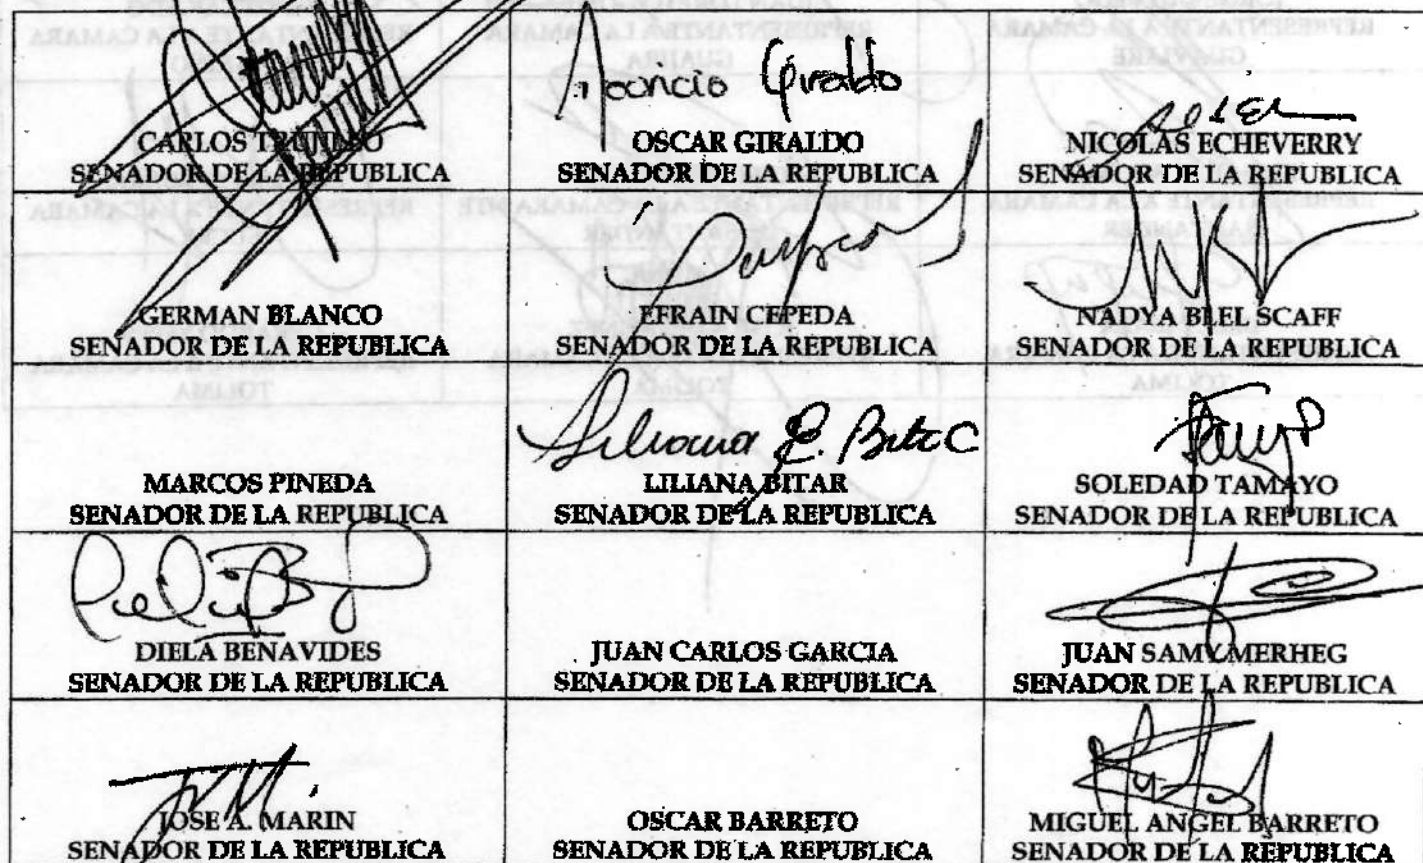 Asencio Giraldo
CARLOS TRUJILLO
SENADOR DE LA REPUBLICA
OSCAR GIRALDO
SENADOR DE LA REPUBLICA
NICOLAS ECHEVERRY
SENADOR DE LA REPUBLICA
GERMAN BLANCO
SENADOR DE LA REPUBLICA
EFRAIN CEPEDA
SENADOR DE LA REPUBLICA
NADYA BLEL SCAFF
SENADOR DE LA REPUBLICA
MARCOS PINEDA
SENADOR DE LA REPUBLICA
Liliana E. Bitar C
LILIANA BITAR
SENADOR DE LA REPUBLICA
SOLEDAD TAMAYO
SENADOR DE LA REPUBLICA
DIELA BENAVIDES
SENADOR DE LA REPUBLICA
JUAN CARLOS GARCIA
SENADOR DE LA REPUBLICA
JUAN SAMY MERHEG
SENADOR DE LA REPUBLICA
JOSE A. MARIN
SENADOR DE LA REPUBLICA
OSCAR BARRETO
SENADOR DE LA REPUBLICA
MIGUEL ANGEL BARRETO
SENADOR DE LA REPUBLICA